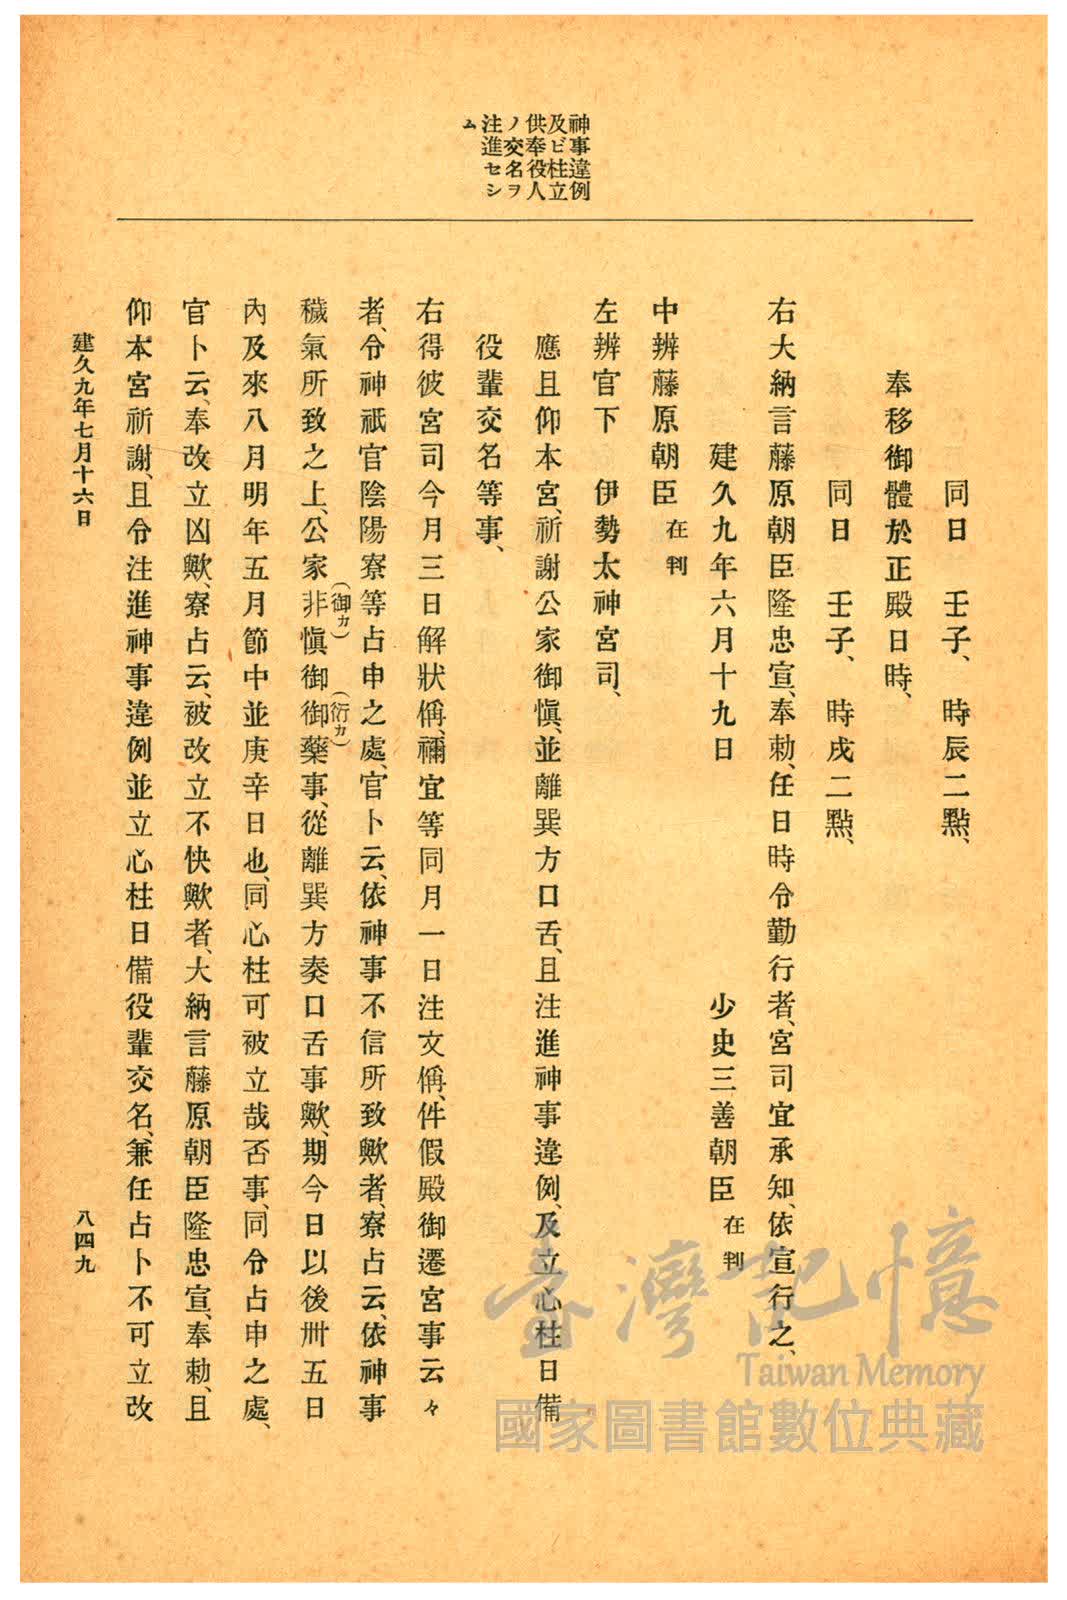 神事違例
及ビ柱立
供奉役人
ノ交名ヲ
注進セシ
ム
同日　壬子、　時辰二點、
同日　壬子、　時戌二點、
奉移御體於正殿日時、
右大納言藤原朝臣隆忠宣、奉勅、任日時令勤行者、宮司宜承知、依宣行之、
建久九年六月十九日　少史三善朝臣在判
中辨藤原朝臣在判
左辨官下　伊勢太神宮司、
應且仰本宮、祈謝公家御愼、並離巽方口舌、且注進神事違例、及立心柱日備
役輩交名等事、
右得彼宮司今月三日解狀偁、禰宜等同月一日注文偁、件假殿御遷宮事云々
者、令神祇官陰陽寮等占申之處、官卜云、依神事不信所致歟者、寮占云、依神事
穢氣所致之上、公家非(御カ)愼御御(衍カ)藥事、從離巽方奏口舌事歟、期今日以後卅五日
內及來八月明年五月節中並庚辛日也、同心柱可被立哉否事、同令占申之處、
官卜云、奉改立凶歟、寮占云、被改立不快歟者、大納言藤原朝臣隆忠宣、奉勅、且
仰本宮祈謝、且令注進神事違例並立心柱日備役輩交名、兼任占卜不可立改
建久九年七月十六日
八四九
臺灣記憶
Taiwan Memory
國家圖書館數位典藏